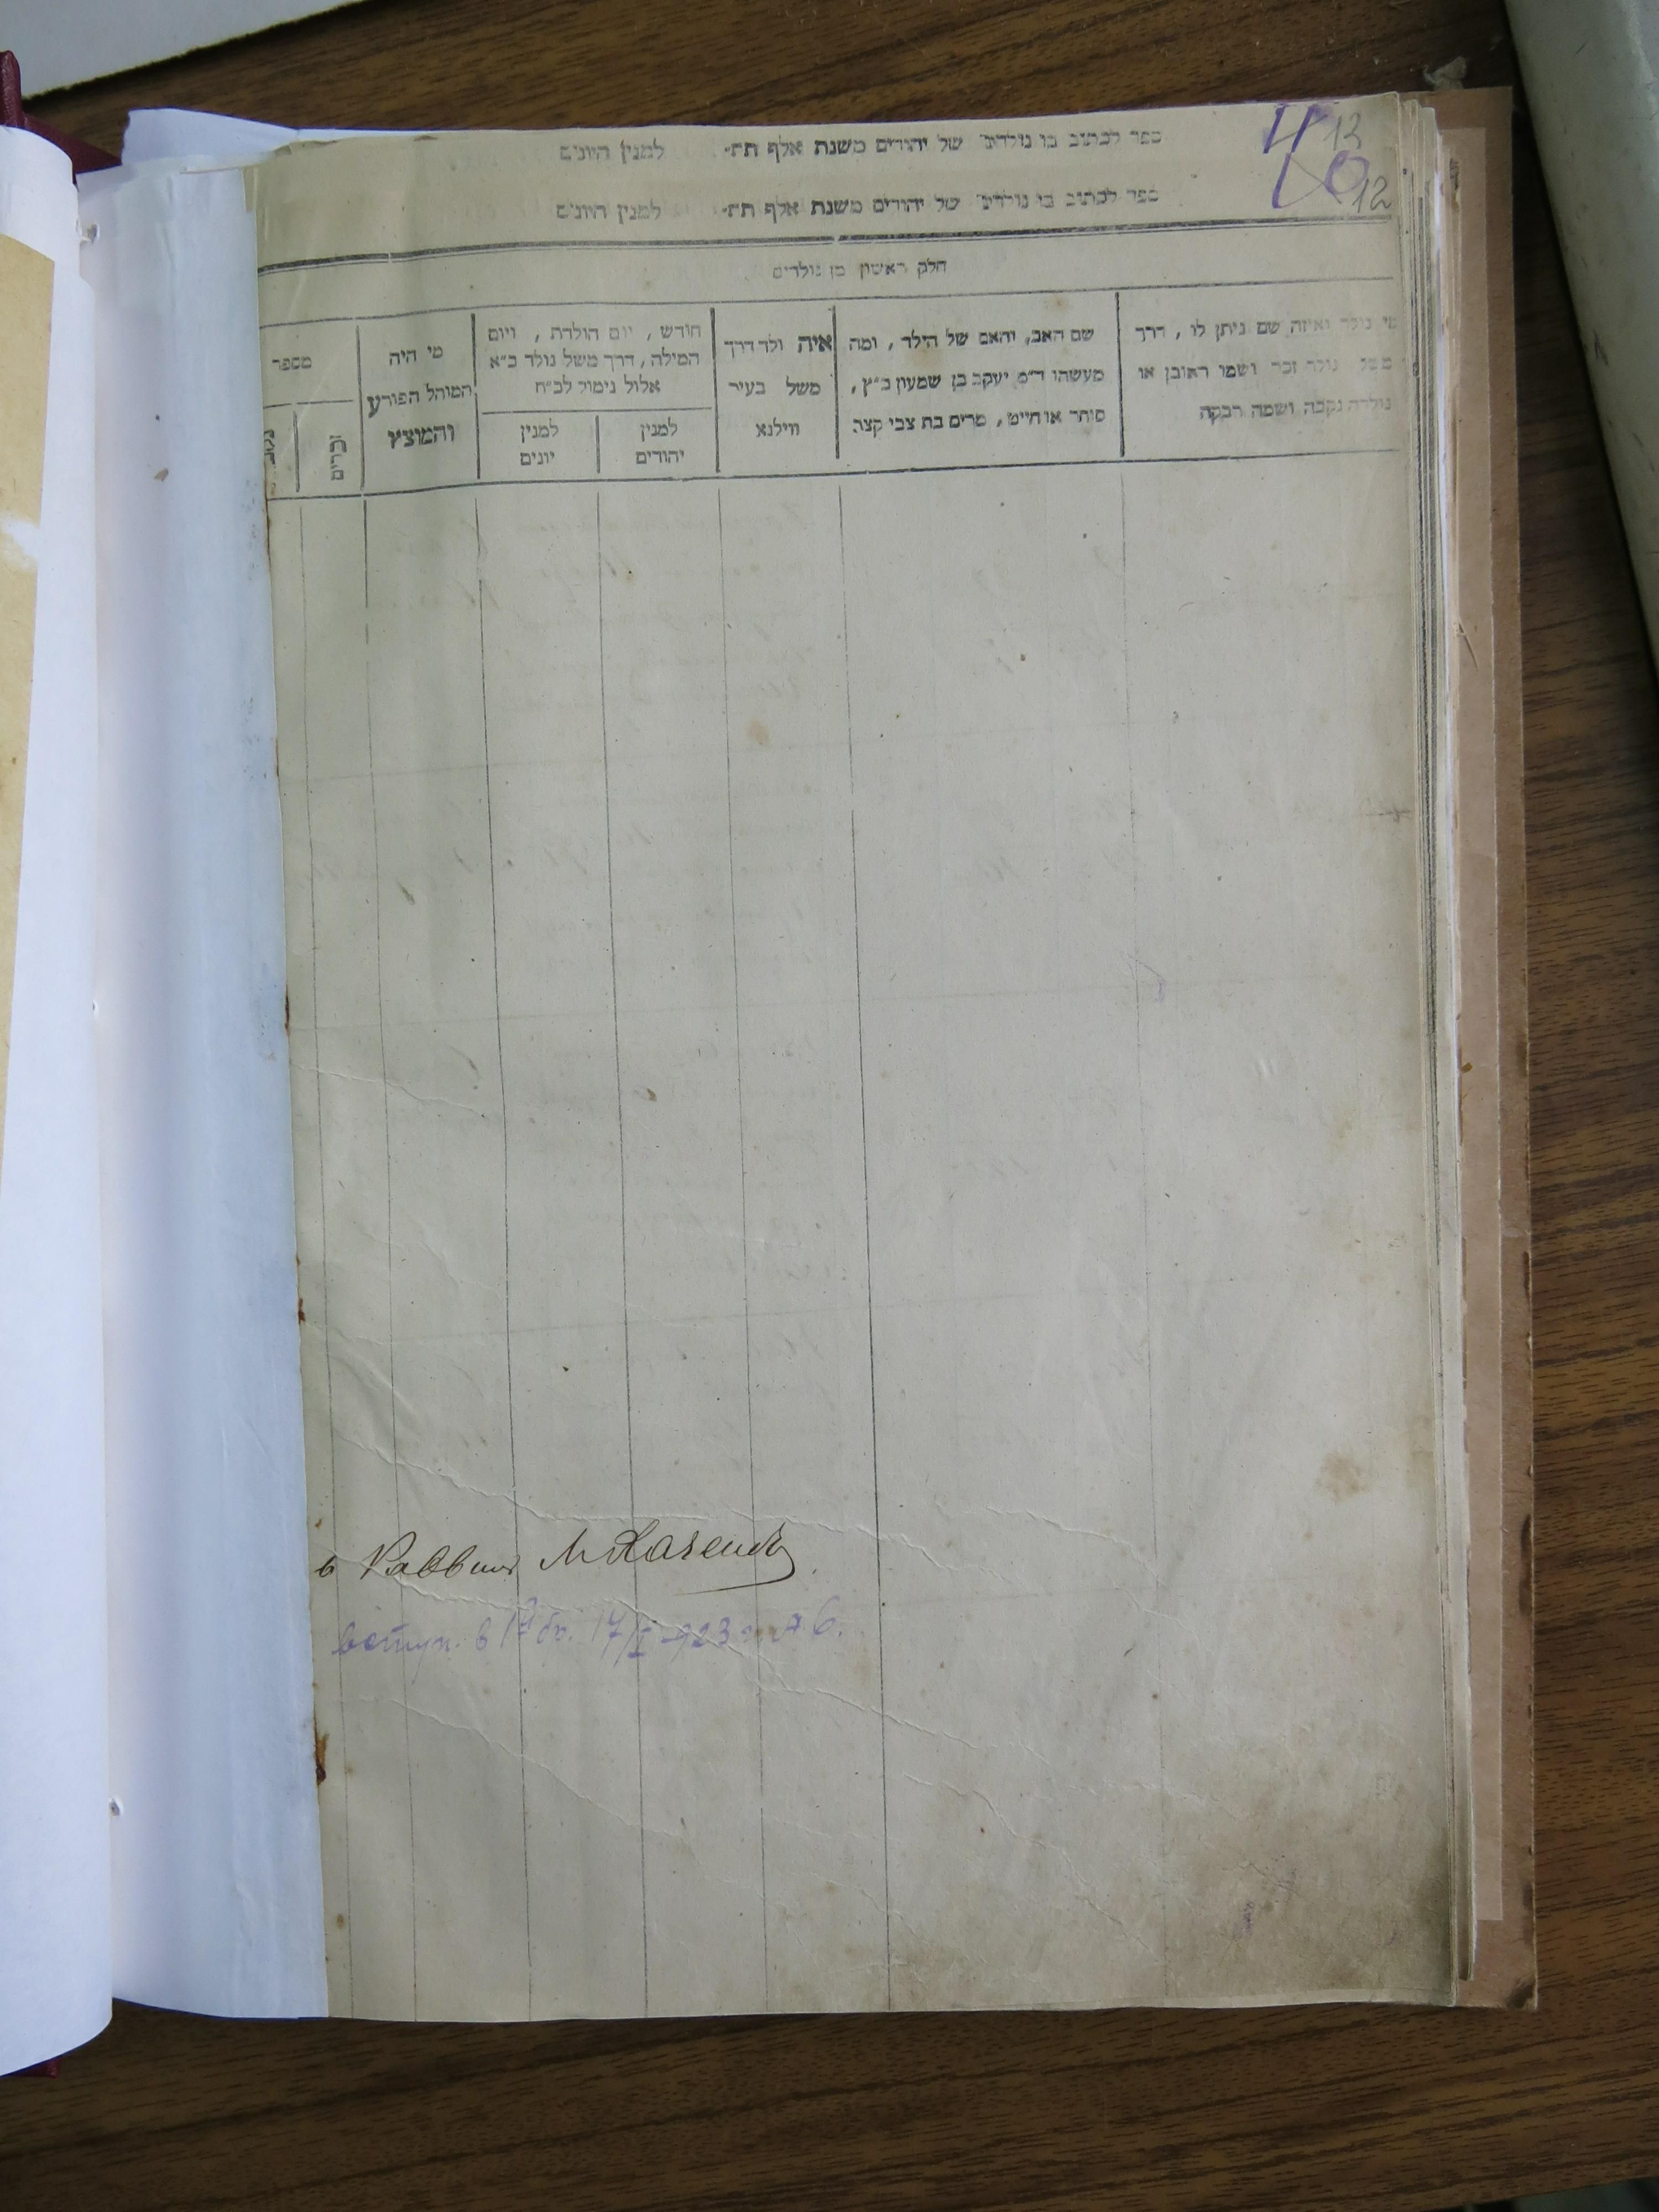 13
ספר לכתוב בו נולדים של יהודים משנת אלף תת״ למנין היונים
12
ספר לכתוב בו נולדים של יהודים משנת אלף תת״ למנין היונים
חלק ראשון מן נולדים
מי נולד ואיזה שם ניתן לו , דרך
משל נולד זכר ושמו ראובן או
נולדה נקבה ושמה רבקה
שם האב, והאם של הילד , ומה
מעשהו ד״מ יעקב בן שמעון כ״ץ ,
סוחר או חייט , מרים בת צבי קצב
איה ולד דרך
משל בעיר
ווילנא
חודש , יום הולדת , ויום
המילה, דרך משל נולד כ״א
אלול נימול לכ״ח
למנין
יהודים
למנין
יונים
מי היה
המוהל הפורע
והמוצץ
מספר
זכרים
Раввин
17/I 923 г.